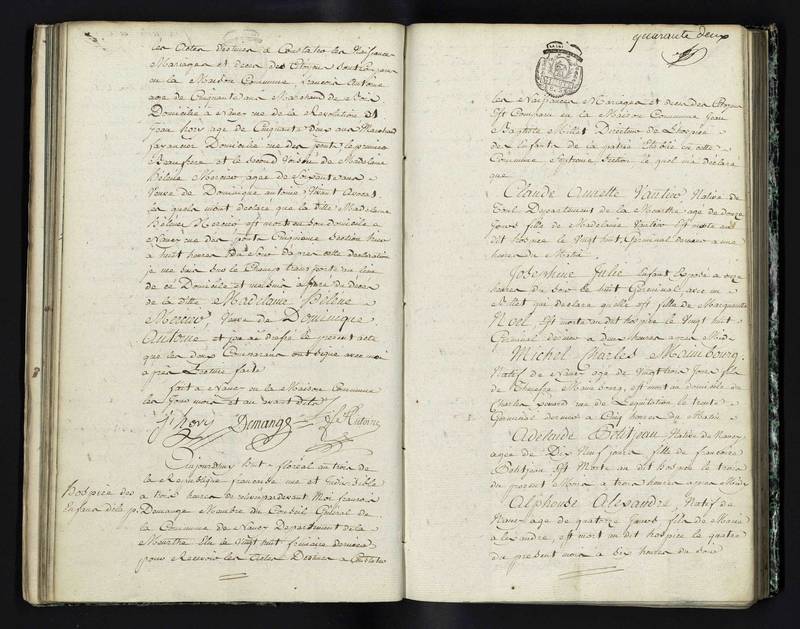 les Actes destinés a Constater les Naissances
Mariages et deces des Citoyens
en la Maison Commune francois Antoine
age de Cinquante ans Marchand de Bois
Domicilié a Nancy rue de la Revolution Et
Jean hory age de Cinquante deux ans Marchand
Domicilié rue des ponts le premier
Beaufrere et le Second Voisin de Madelaine
Hélène Mercier agée de Soixante ans
Veuve de Dominique antoine Vivant Avocat
les quels m'ont déclaré que la ditte Madelaine
Hélène Mercier est morte en son domicile a
Nancy rue des ponts Cinquieme Section hier
a huit heures du Soir Dapres cette declaration
je me suis sur le Champ transporté au lieu
de ce Domicile et me suis assuré du deces
de la ditte Madelaine Hélène
Mercier, Veuve de Dominique
Antoine et j'en ai dressé le present acte
que les deux Comparans ont signé avec moi
apres Lecture faite
fait a Nancy en la Maison Commune
les Jour mois et an avant dits
J hory Demange Antoine
Aujourdhuy huit floréal an trois de
la Republique francaise une et Indivisible
hospice des
Enfans de la p.
a trois heures de relevee pardevant Moi francois
Demange Membre du Conseil Général de
la Commune de Nancy Departement de la
Meurthe Elu le Vingt huit frimaire dernier
pour Recevoir les Actes Destinés a Constater
quarante deux
les Naissances Mariages et deces des Citoyens
Est Comparu en la Maison Commune Jean
Baptiste Millet Directeur de Lhospice
des Enfants de la patrie Etablie en cette
Commune Septieme Section le quel m'a déclaré
que
Claude Aurette Vautier Native de
Toul Departement de la Meurthe age de douze
Jours fille de Madelaine Vautier Est morte au
dit hospice le Vingt huit Germinal dernier a une
heure du Matin
Josephine Julie Enfant Exposé a onze
heures du Soir le huit Germinal avec un
Billet qui declare quelle est fille de Marguerite
Noel, Est morte au dit hospice le Vingt huit
Germinal dernier a deux heures apres Midi
Michel Charles Maimbourg
Natif de Nancy age de Vingt trois Jours fils
de Maimbourg, est mort au domicile de
Charles rue de Legalitation le trente
Germinal dernier a Cinq heures du Matin
Adelaide Petitjean Native de Nancy
agée de Dix Neuf Jours fille de francoise
Petitjean Est Morte au dit hospice le trois
du present Mois a trois heures apres Midi
Alphonse Alexandre, Natif de
Nancy age de quatorze Jours, fils de Marie
alexandre, est mort au dit hospice le quatre
du present mois a Six heures du Soir